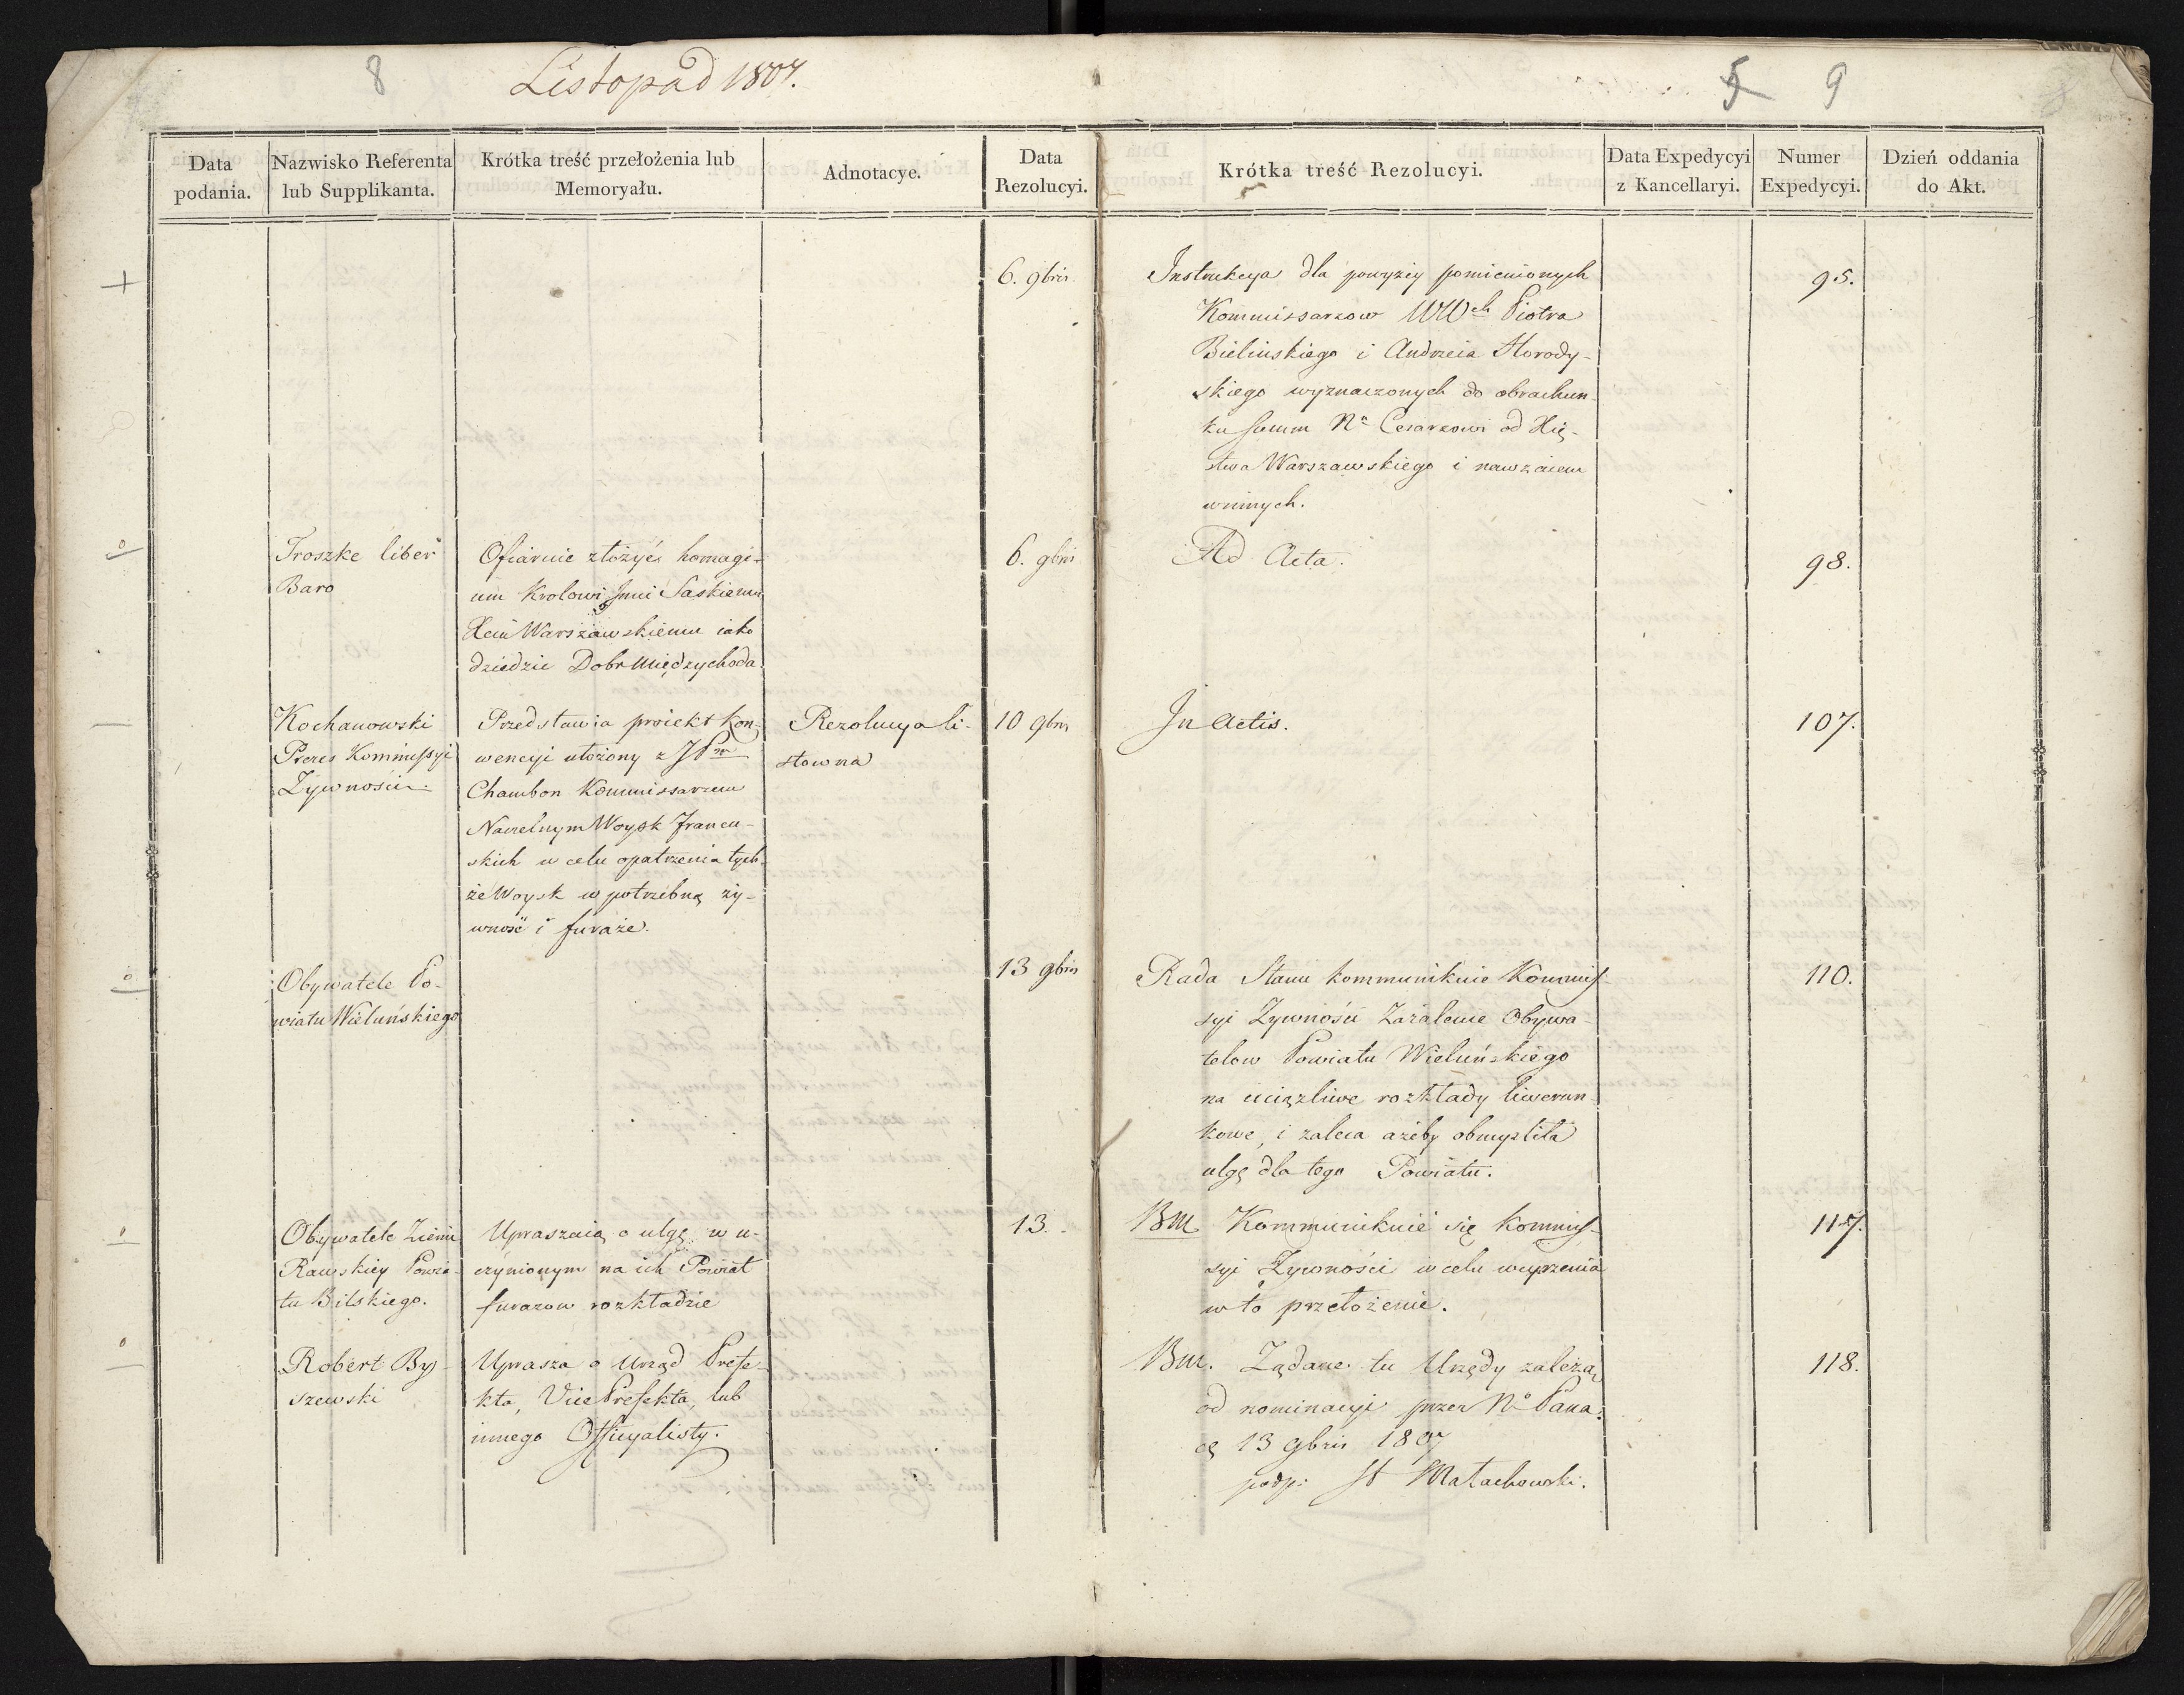 8
Listopad 1807.
5 9
Data podania.
Nazwisko Referenta lub Supplikanta.
Krótka treść przełożenia lub Memoryału.
Adnotacye.
Data Rezolucyi.
Krótka treść Rezolucyi.
Data Expedycyi z Kancellaryi.
Numer Expedycyi.
Dzień oddania do Akt.
+
6. 9bris
Instrukcya dla powyżey pomienionych
Kommissarzow WWch Piotra
Bielinskiego i Andrzeia Horody-
skiego wyznaczonych do obrachun-
ku summ Nu Cesarzowi od Xię-
stwa Warszawskiego i nawzaiem
winnych.
95.
Troszke liber
Baro
Ofiaruie złożyć homagi-
um Krolowi Jmci Saskiemu
Xciu Warszawskiemu iako
dziedzic Dobr Międzychoda.
6. 9bris
Ad Acta.
98.
Kochanowski
Prezes Kommissyi
Żywności.
Przedstawia proiekt kon-
wencyi ułożony z JPm
Chambon Kommissarzem
Naczelnym Woysk Francu-
skich w celu opatrzenia tych-
że Woysk w potrzebną ży-
wność i furaże.
Rezolucya li-
stowna
10 9bris
In Actis.
107.
Obywatele Po-
wiatu Wieluńskiego
13 9bris
Rada Stanu kommunikuie Kommis-
syi Żywności Zażalenie Obywa-
telow Powiatu Wieluńskiego
na uciążliwe rozkłady liwerun-
kowe, i zaleca ażeby obmyśliła
ulgę dla tego Powiatu.
110.
Obywatele Ziemi
Rawskiey Powia-
tu Bilskiego.
Upraszaią o ulgę w u-
czynionym na ich Powiat
furażow rozkładzie
13.
BM Kommunikuie się Kommis-
syi Żywności w celu weyrzenia
w to przełożenie.
117.
Robert By-
szewski
Uprasza o Urząd Prefe-
kta, Vice Prefekta, lub
innego Officyalisty.
BM. Żądane tu Urzędy zależą
od nominacyi przez No Pana.
cę 13 9bris 1807
podp: St Małachowski.
118.